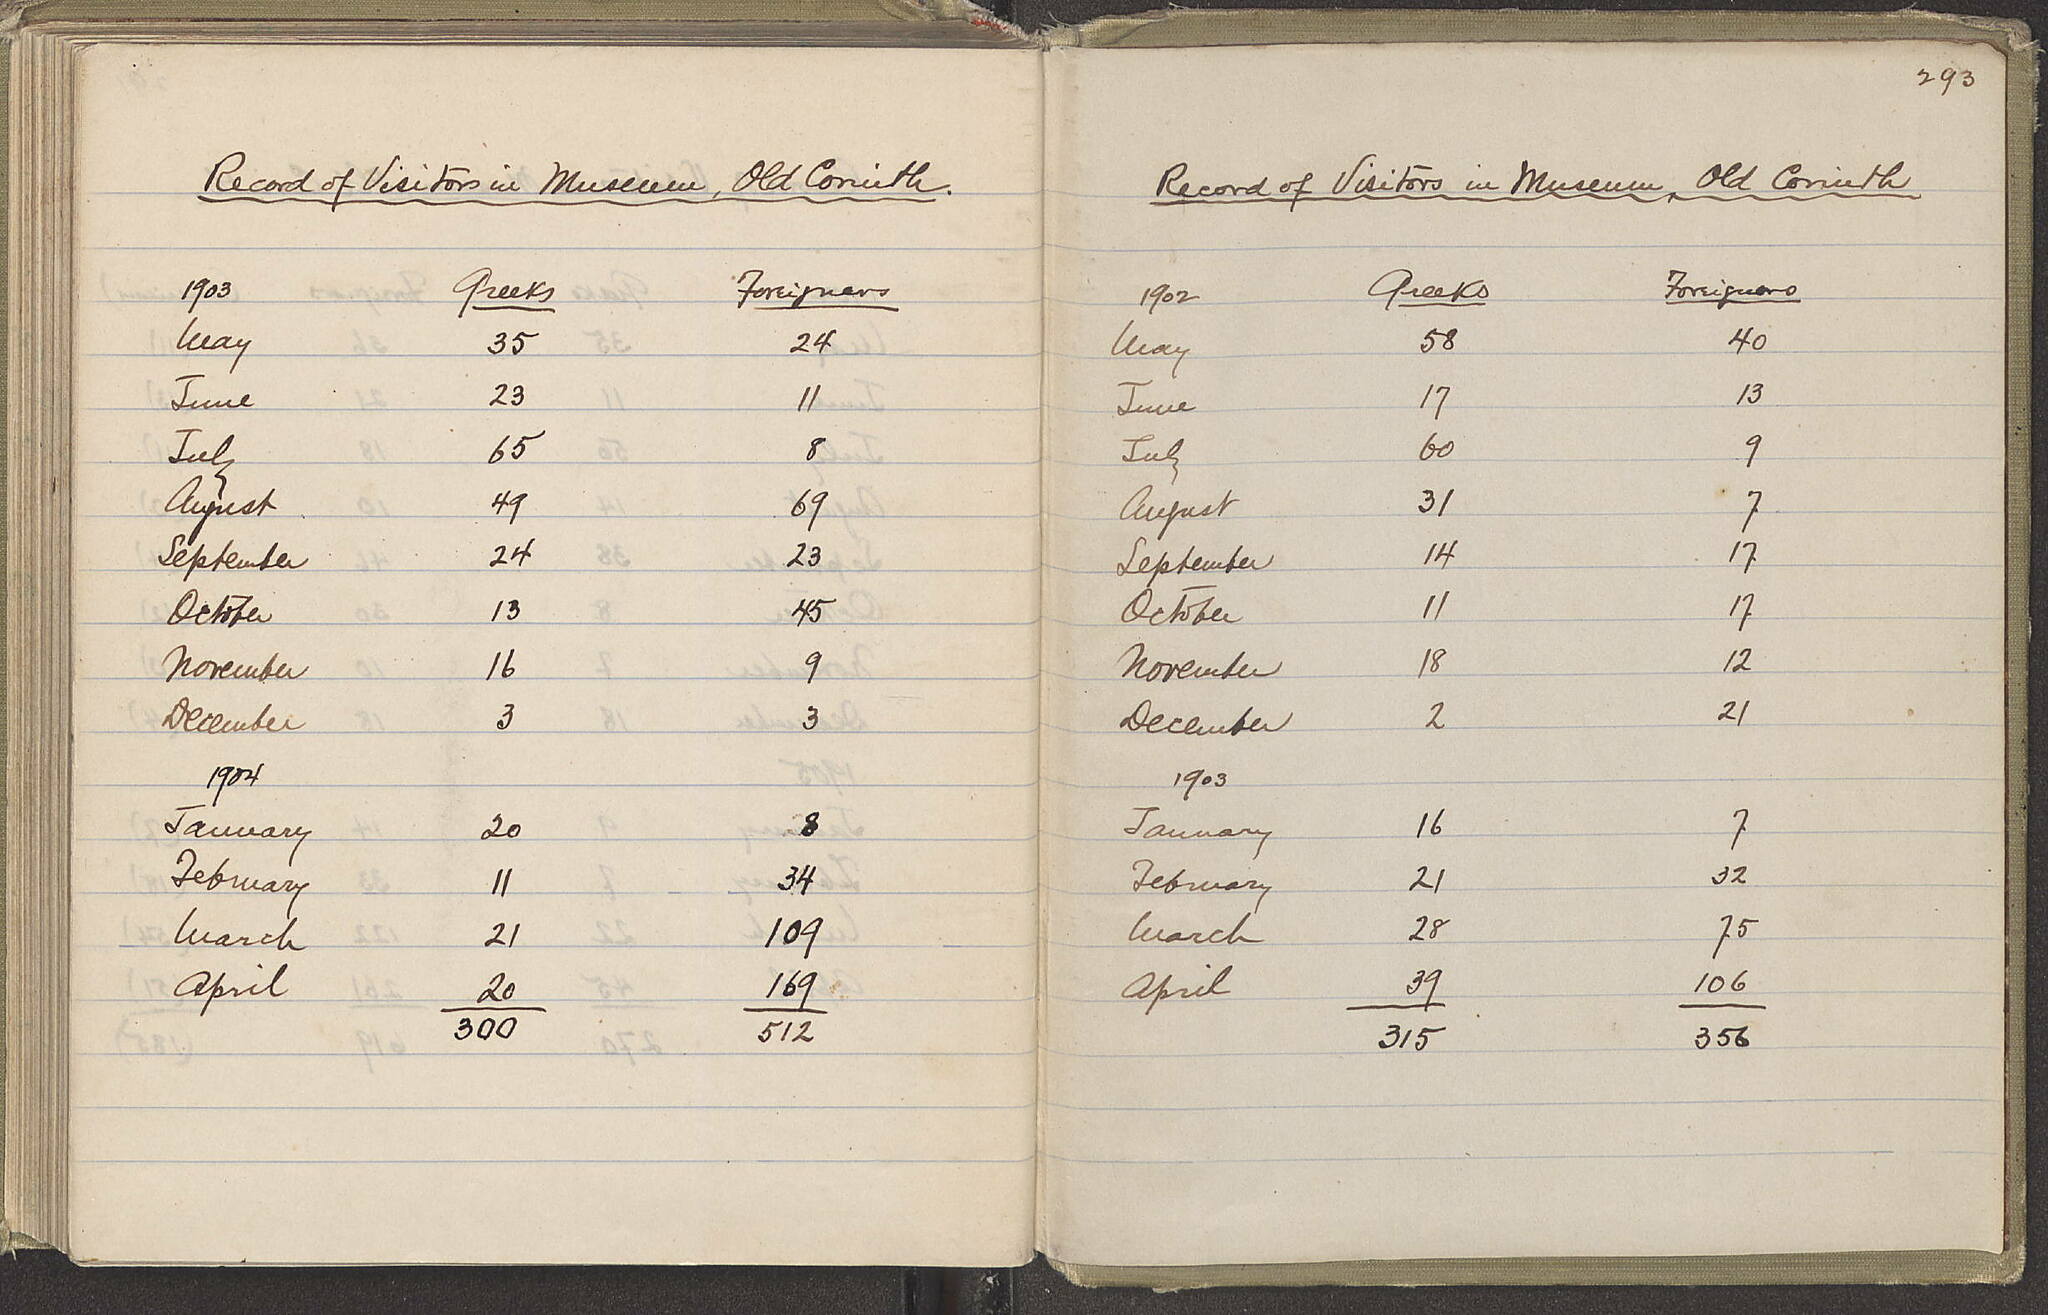 Record of Visitors in Museum, Old Corinth.
1903 Greeks Foreigners
May 35 24
June 23 11
July 65 8
August 49 69
September 24 23
October 13 45
November 16 9
December 3 3
1904
January 20 8
February 11 34
March 21 109
April 20 169
300 512
293
Record of Visitors in Museum, Old Corinth
1902 Greeks Foreigners
May 58 40
June 17 13
July 60 9
August 31 7
September 14 17
October 11 17
November 18 12
December 2 21
1903
January 16 7
February 21 32
March 28 75
April 39 106
315 356